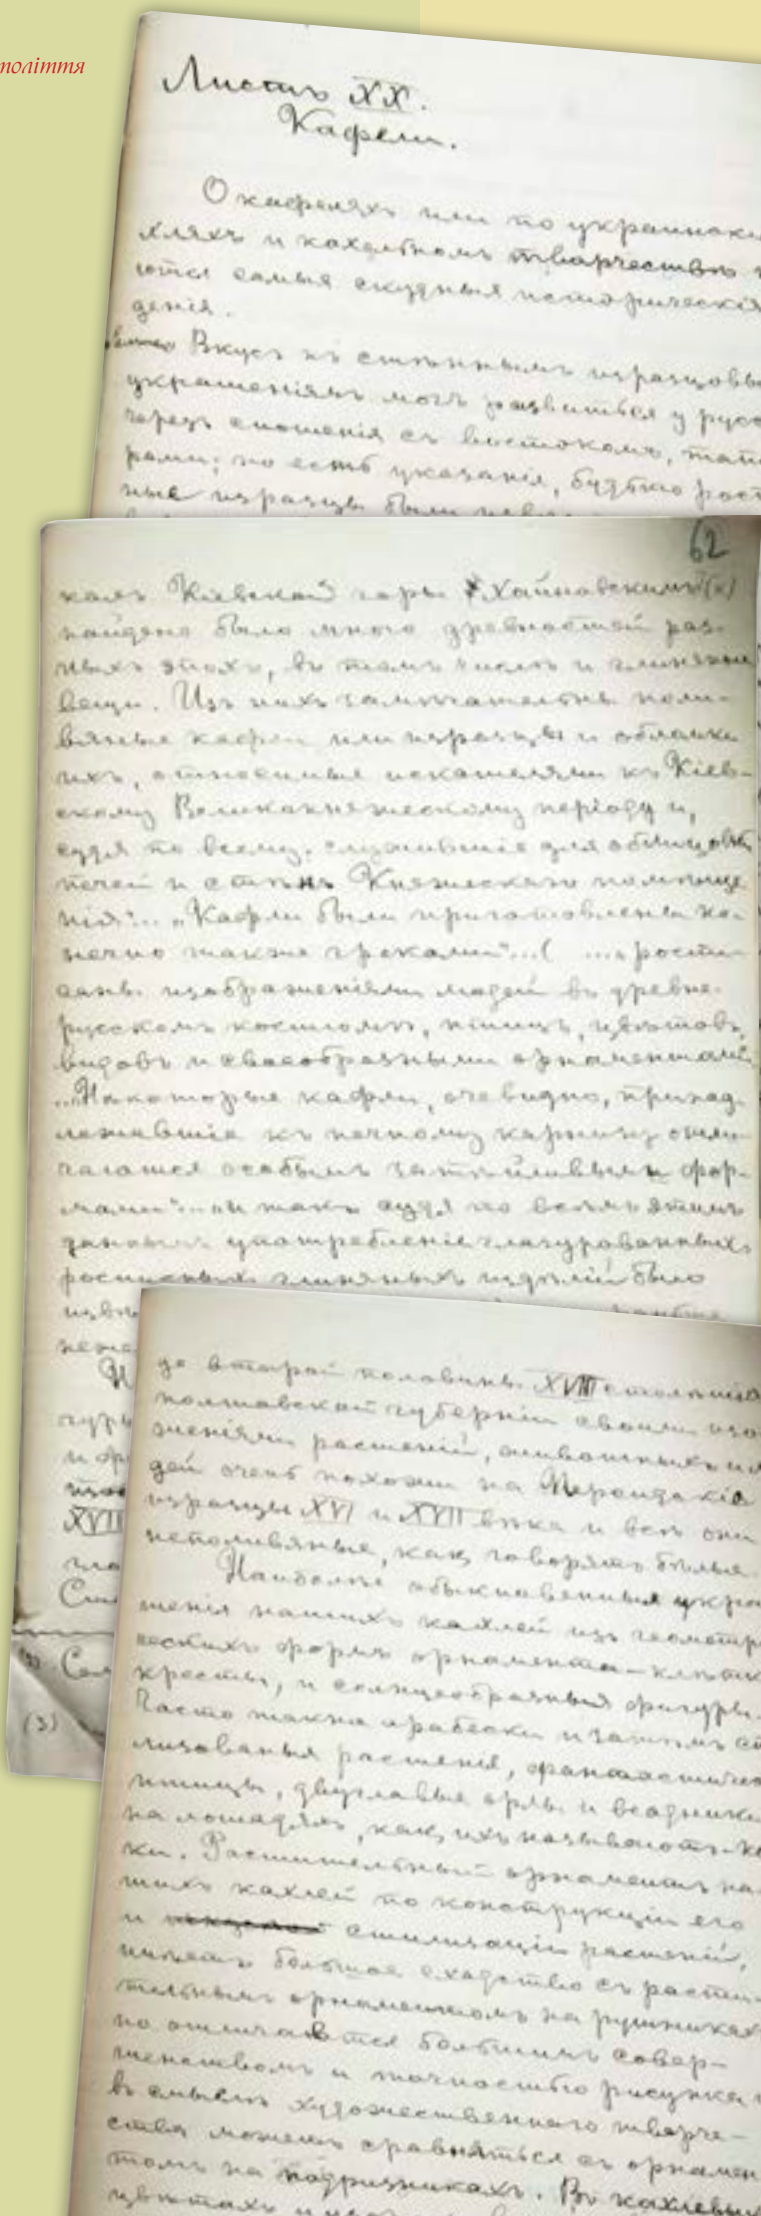 ління
Листъ XX.
Кафели.
О кафеляхъ или по украински
хляхъ и кахельномъ творчествѣ
ются самыя скудныя историческія
денія.
Вкусъ къ стѣннымъ изразцовы
украшеніямъ могъ развиться у русс
черезъ сношенія съ востокомъ, тата
рами; но есть указанія, будто рост
ные изразцы были
62
Кіевской горы Хойновскимъ (х)
найдено было много древностей раз-
ныхъ эпохъ, въ томъ числѣ и глиняныя
вещи. Изъ нихъ замѣчательны поли-
вяные кафли или изразцы и обломки
ихъ, относимые искателями къ Кіев-
скому Великокняжескому періоду и,
судя по всему, служившіе для облицовки
печей и стѣнъ Княжескаго помѣще
нія"... "Кафли были приготовлены ко-
нечно также греками"...( ..."роспи-
саны изображеніями людей въ древне-
русскомъ костюмѣ, птицъ, цвѣтовъ,
видовъ и своеобразными орнаментами
..."Нѣкоторые кафли, очевидно, принад-
лежавшіе къ печному карнизу отли-
чаются особымъ затѣйливыми фор-
мами"... и такъ судя по всѣмъ этимъ
даннымъ употребленіе глазурованныхъ
росписныхъ глиняныхъ издѣлій было
XVII
(3)
до второй половины XVIII столѣтія
полтавской губерніи своими изо
женіями растеній, животныхъ и л
дей очень похожи на
изразцы XVI и XVII вѣка и всѣ они
неполивяные, какъ говорятъ бѣлые.
Наиболѣе обыкновенныя укра
шенія нашихъ кахлей изъ геометр
ескихъ формъ орнамента – клѣтки
кресты, и солнцеобразныя фигуры.
Часто также арабески и затѣмъ ст
лизованыя растенія, фантастическ
птицы, двуглавые орлы и всадники
на лошадяхъ, какъ ихъ называютъ
ки. Растительный орнаментъ на-
шихъ кахлей по конструкціи его
и стилизаціи растеній,
имѣетъ большое сходство съ расти-
тельнымъ орнаментомъ на рушникахъ
но отличается большимъ совер-
шенствомъ и точностью рисунка
въ смыслѣ художественнаго творче-
ства можетъ сравняться съ орнамен
томъ на подризникахъ. Въ кахлевых
цвѣтахъ и